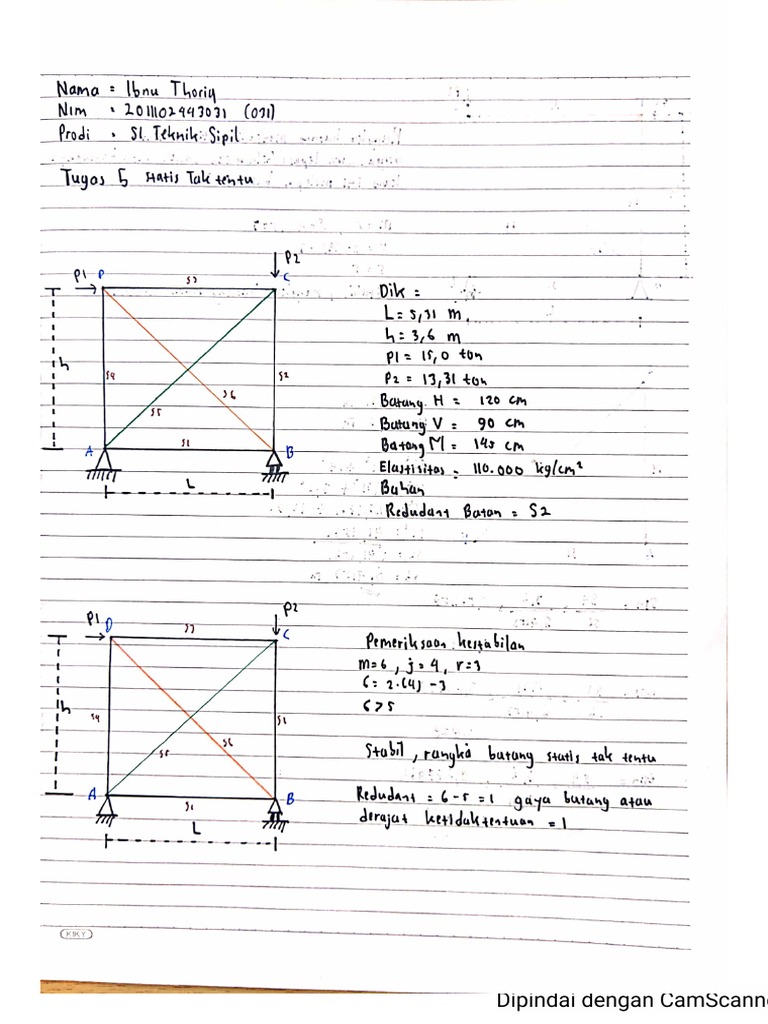 Nama : Ibnu Thoriq
Nim : 2011102443031 (031)
Prodi : S1 Teknik Sipil
Tugas 5 statis Tak tentu
P2
P1 D
S3
C
h
S4
S2
S6
S5
A
S1
B
L
Dik :
L = 5,31 m
h = 3,6 m
P1 = 15,0 ton
P2 = 13,31 ton
Batang H = 120 cm
Batang V = 90 cm
Batang M = 145 cm
Elastisitas = 110.000 kg/cm²
Bahan
Redudant Batan = S2
P2
P1
D
S3
C
h
S4
S6
S5
A
S1
B
L
Pemeriksaan kestabilan
m=6 , j=4, r=3
6 = 2.(4) -3
6 > 5
Stabil, rangka batang statis tak tentu
Redudant = 6-5 = 1 gaya batang atau
derajat ketidaktentuan = 1
KIKY
Dipindai dengan CamScanne